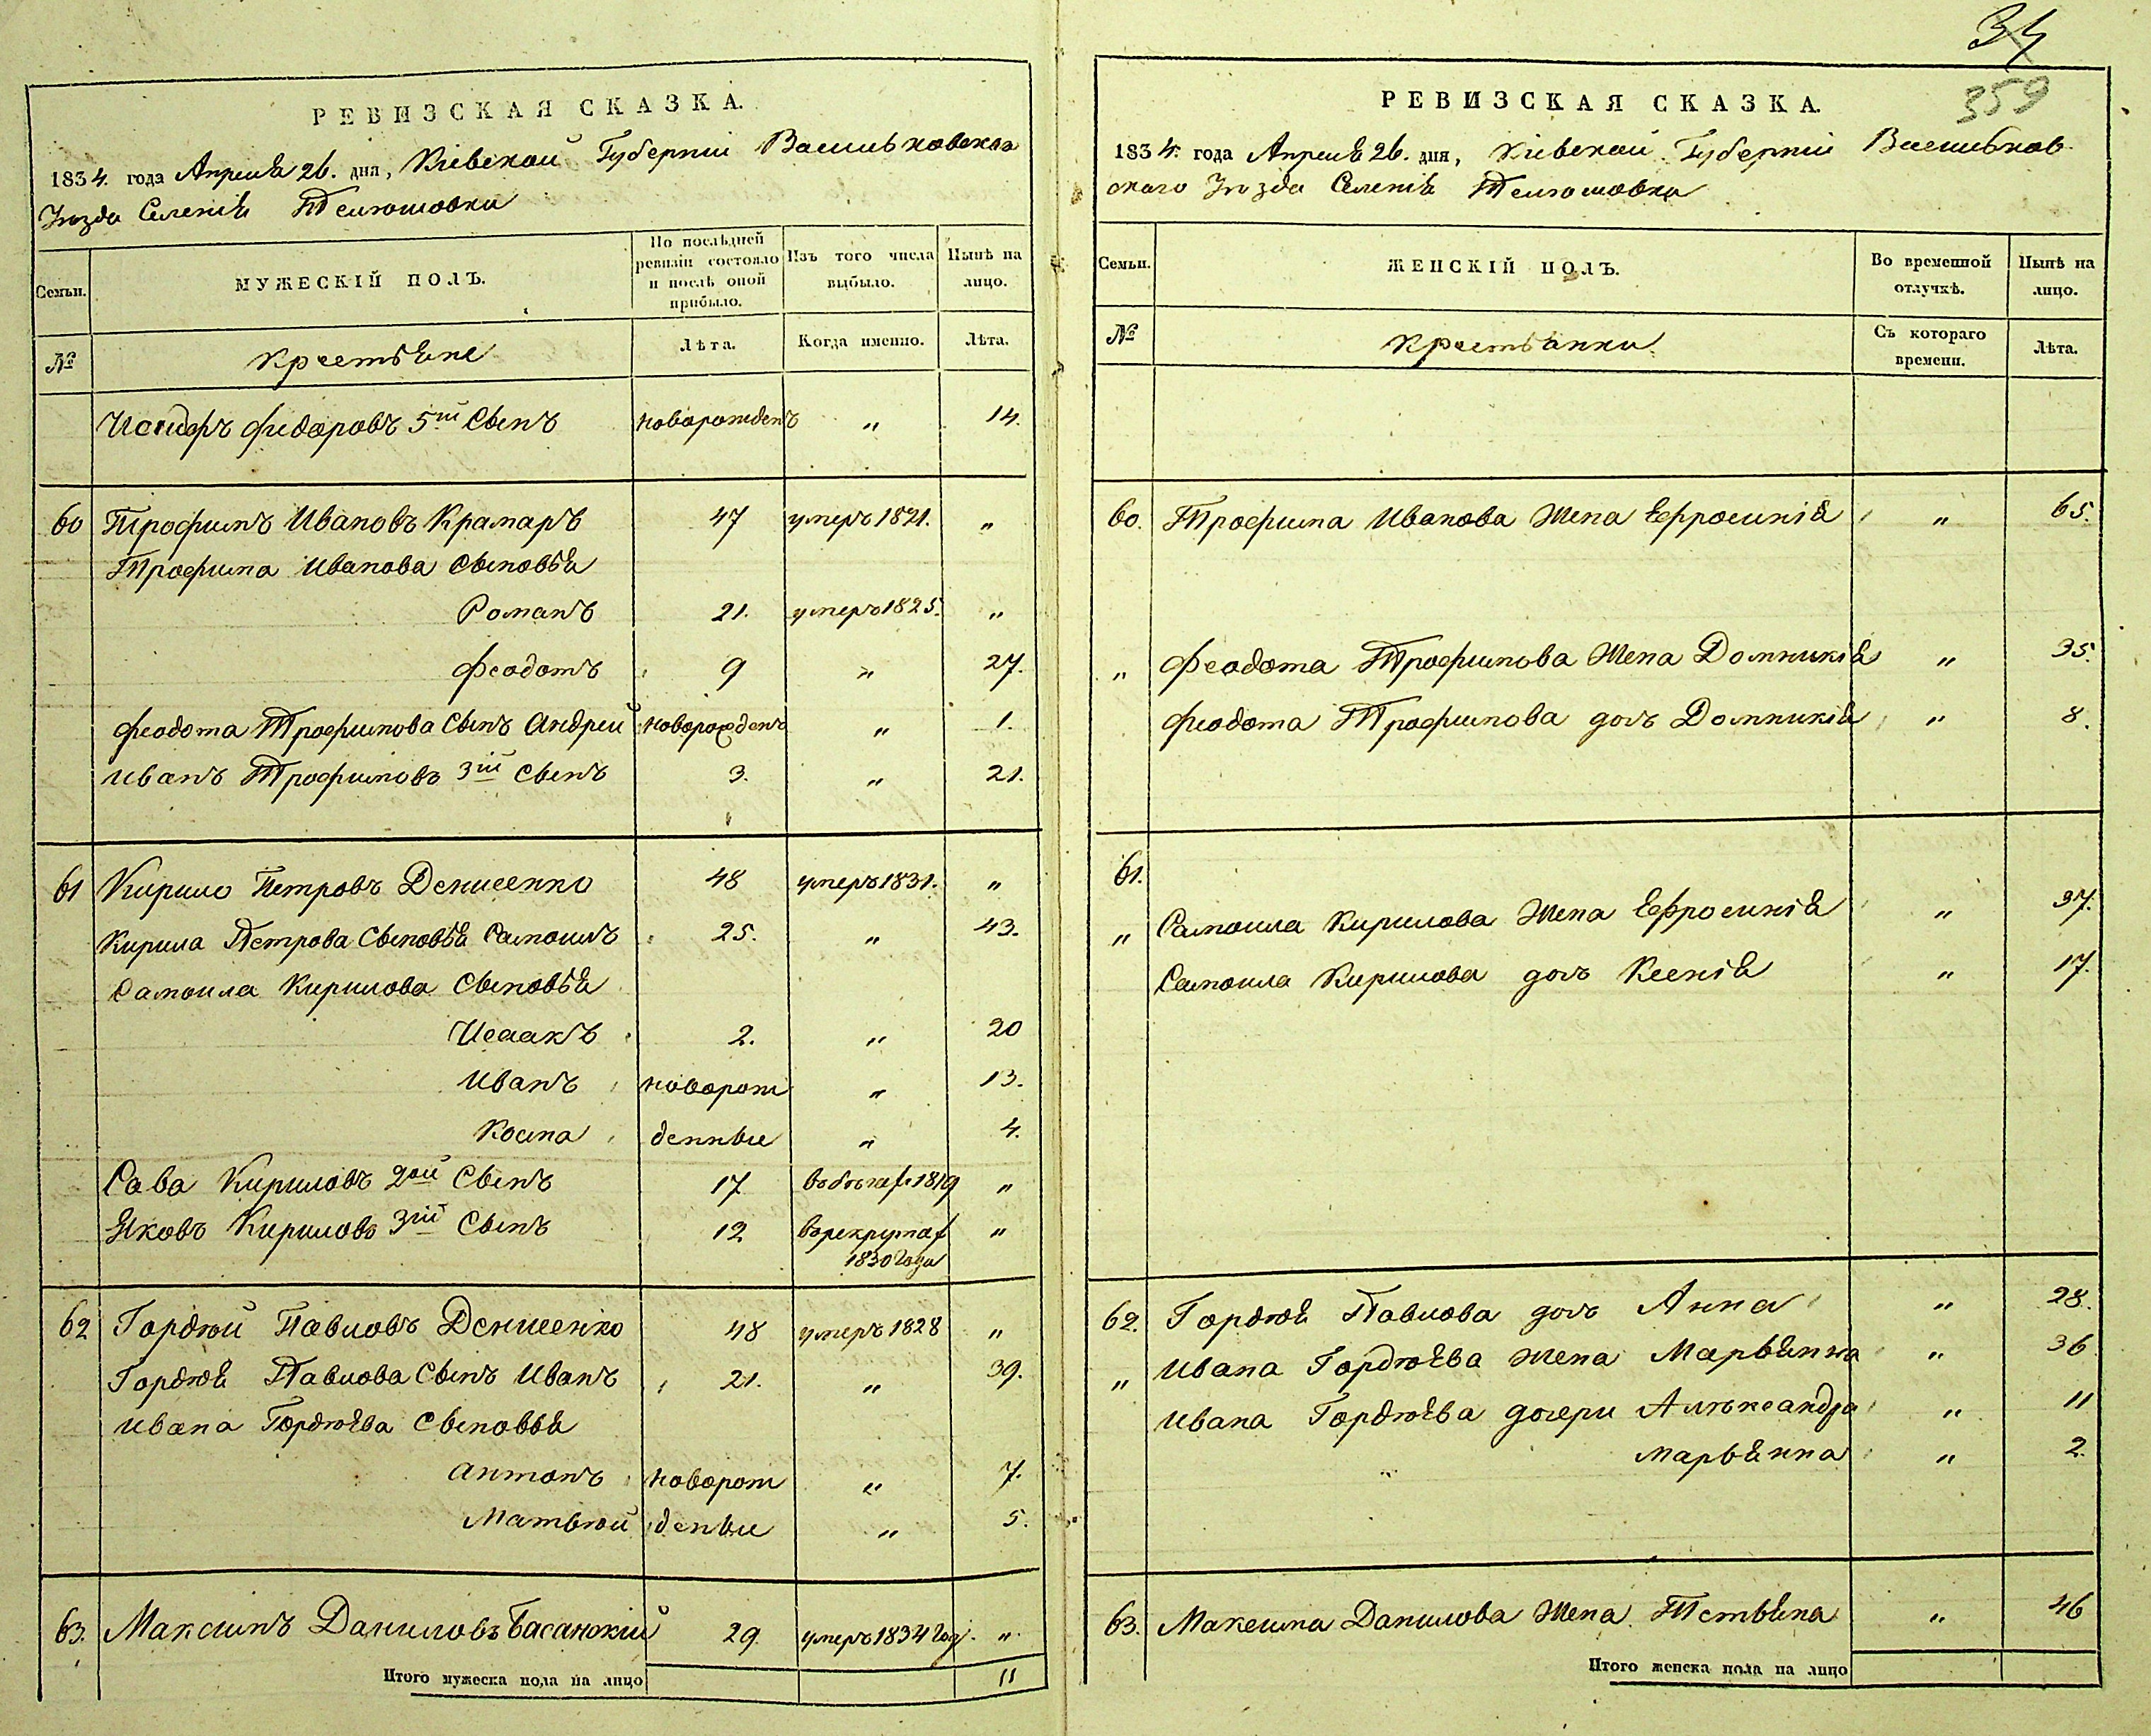 34
359
РЕВИЗСКАЯ СКАЗКА.
1834. года Апреля 26. дня, Кіевской Губерніи Васильковскаго
Уѣзда Селенія Телѣшовки
Семьи.
МУЖЕСКІЙ ПОЛЪ.
По послѣдней ревизіи состояло и послѣ оной прибыло.
Изъ того числа выбыло.
Нынѣ на лицо.
№
Крестьяне
Лѣта.
Когда именно.
Лѣта.
Исидоръ Федоровъ 5ій Сынъ новорожденъ „ 14.
60 Трофимъ Ивановъ Крамаръ 47 умеръ 1821. „
Трофима Иванова Сыновья
Романъ 21. умеръ 1825. „
Феодотъ 9 „ 27.
Феодота Трофимова Сынъ Андрей новорожденъ „ 1.
Иванъ Трофимовъ 3ій Сынъ 3. „ 21.
61 Кирило Петровъ Денисенко 48 умеръ 1831. „
Кирила Петрова Сыновья Самоилъ 25. „ 43.
Самоила Кирилова Сыновья
Исаакъ 2. „ 20
Иванъ новорож „ 13.
Косма денные „ 4.
Сава Кириловъ 2ой Сынъ 17 въ бѣгах 1819 „
Яковъ Кириловъ 3ій Сынъ 12 в рекрутах „
1830 года
62 Гордѣй Павловъ Денисенко 48 умеръ 1828 „
Гордѣя Павлова Сынъ Иванъ 21. „ 39.
Ивана Гордѣева Сыновья
Антонъ новорож „ 7.
Матвѣй денные „ 5.
63. Максимъ Даниловъ Басанский 29. умеръ 1834 год. „
Итого мужеска пола на лицо 11
РЕВИЗСКАЯ СКАЗКА.
1834. года Апреля 26. дня, Кіевской Губерніи Васильков
скаго Уѣзда Селенія Телѣшовки
Семьи.
ЖЕНСКІЙ ПОЛЪ.
Во временной отлучкѣ.
Нынѣ на лицо.
№
Крестьянки
Съ котораго времени.
Лѣта.
60. Трофима Иванова Жена Ефросинія „ 65.
„ Феодота Трофимова Жена Домникія „ 35.
Феодота Трофимова дочь Домникія „ 8.
61.
„ Самоила Кирилова Жена Ефросинія „ 37.
Самоила Кирилова дочь Ксенія „ 17.
62. Гордѣя Павлова дочь Анна „ 28.
„ Ивана Гордѣева Жена Марьянна „ 36
Ивана Гордѣева дочери Алѣксандра „ 11
Марьянна „ 2.
63. Максима Данилова Жена Тетьяна „ 46
Итого женска пола на лицо